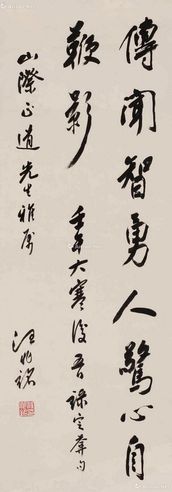 傳聞智勇人驚心自
鞭影
壬午大寒後錄定盦句
山際正道先生雅屬
汪兆銘